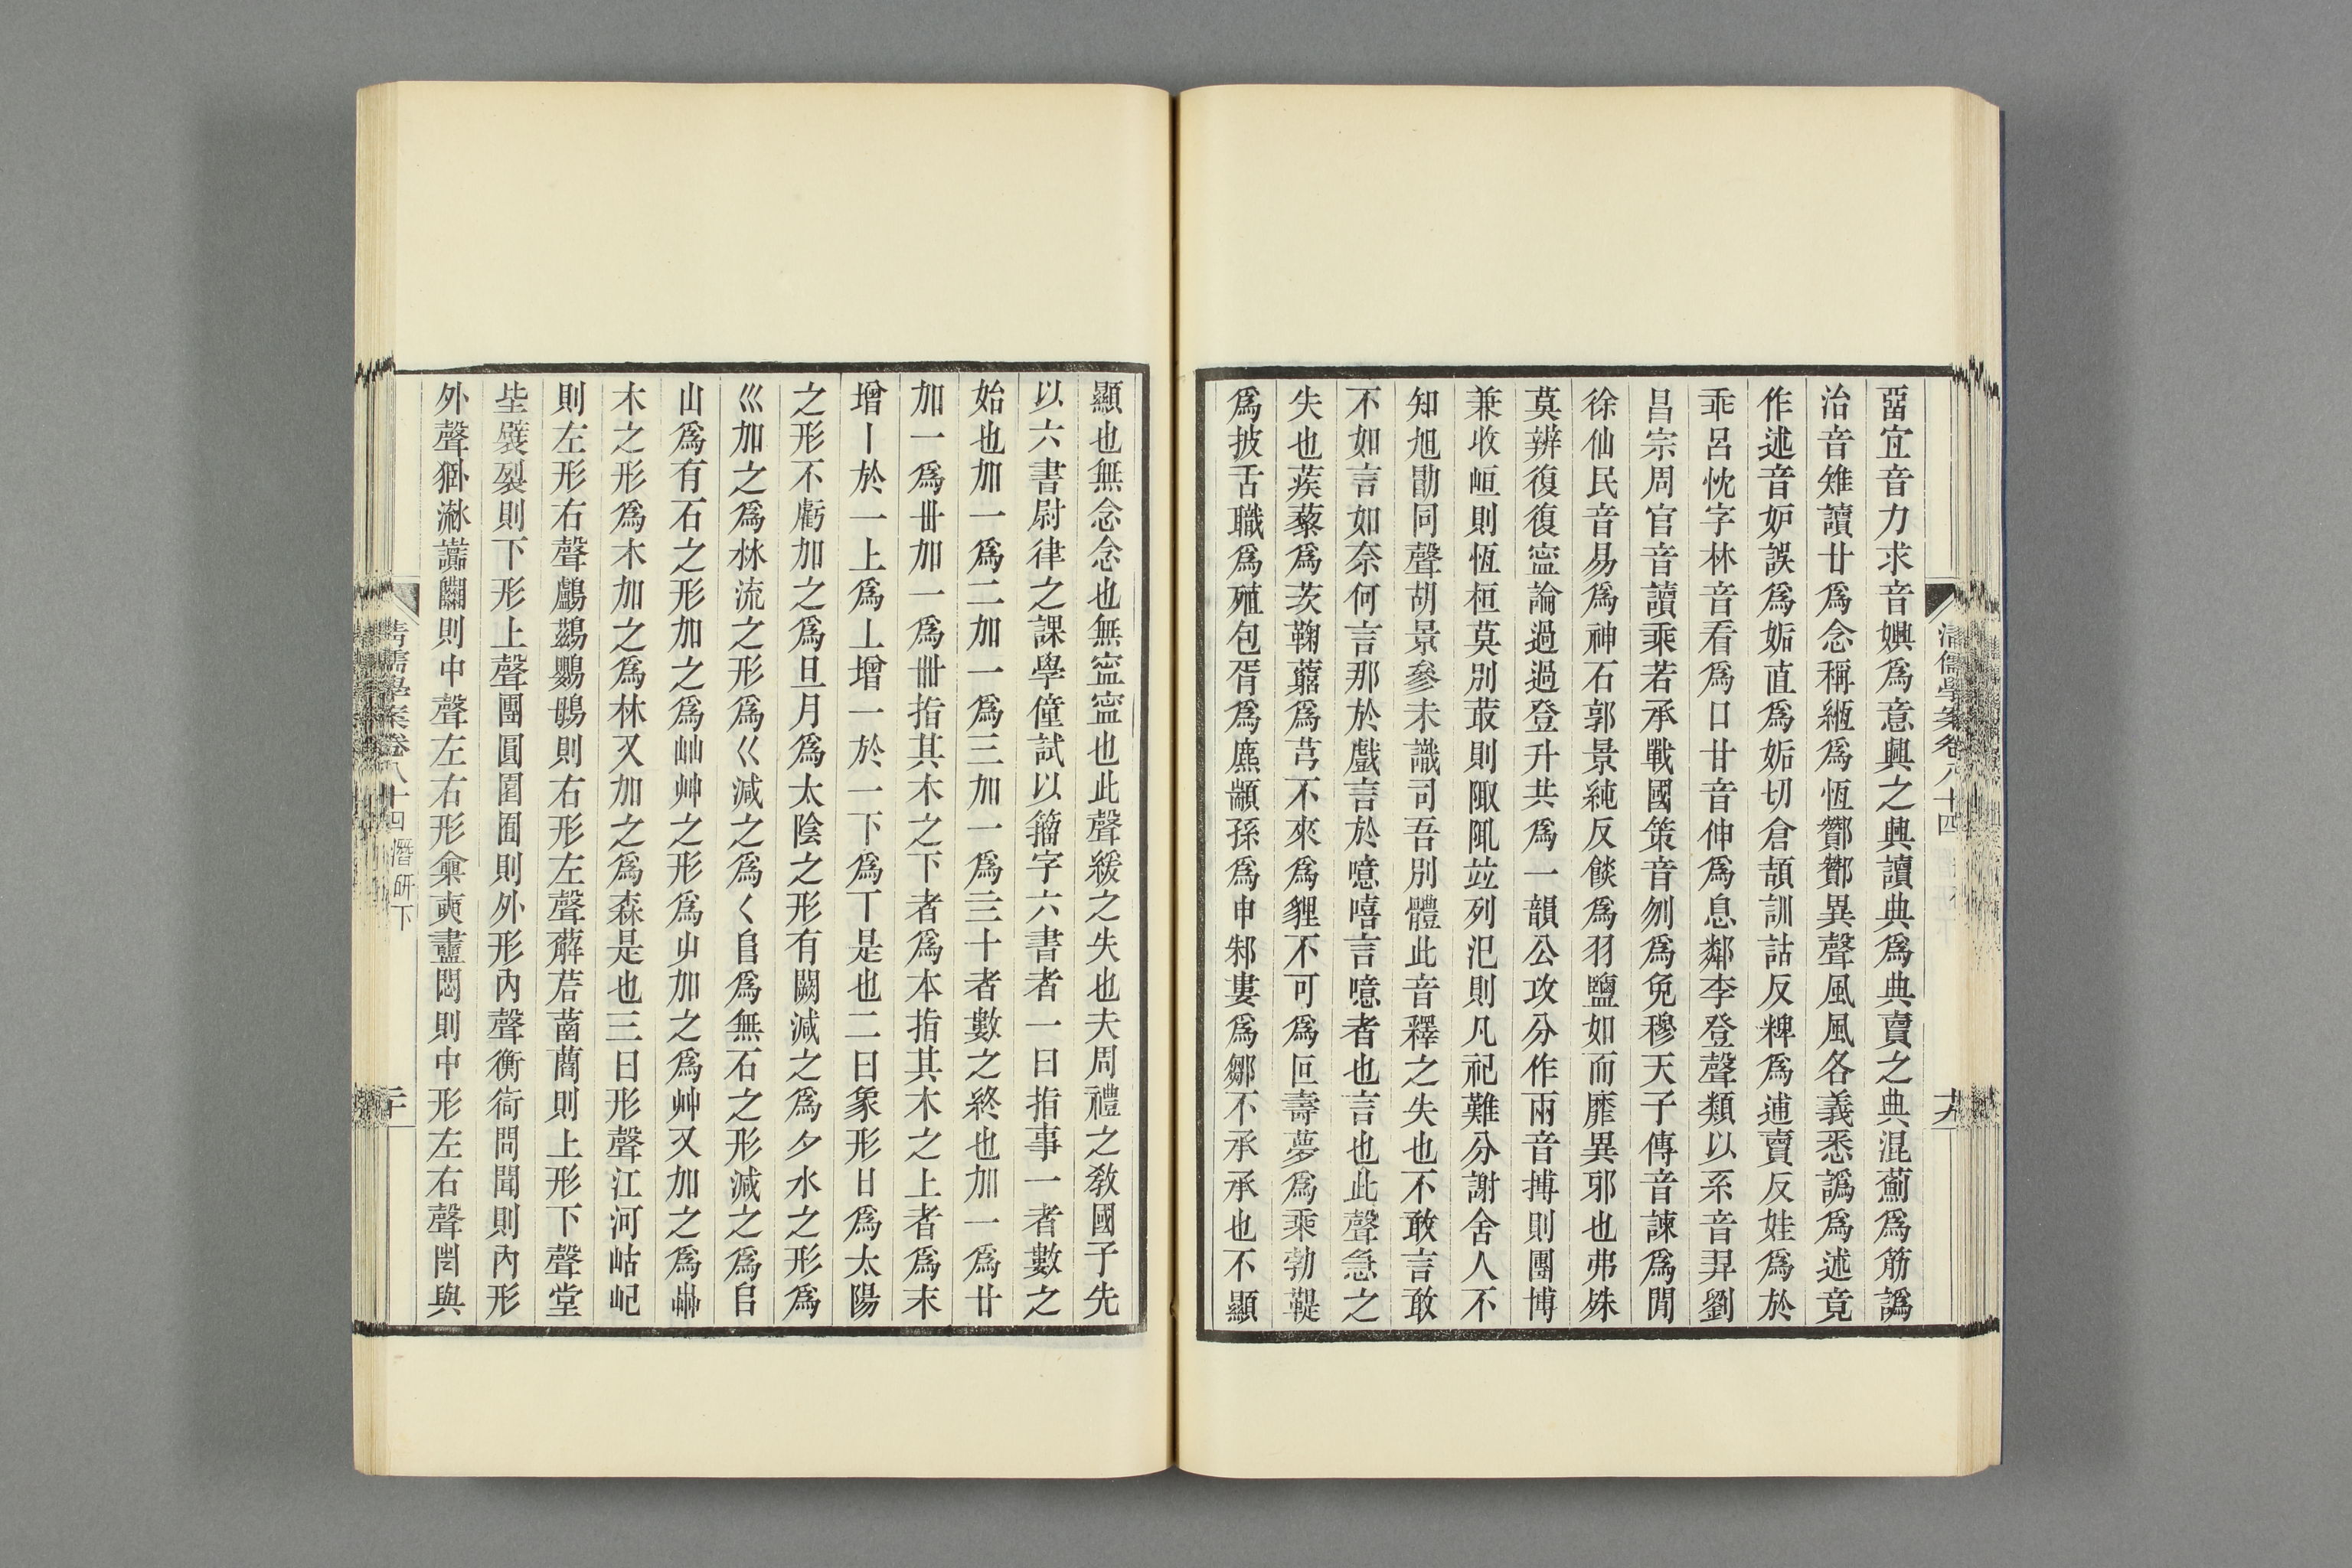 清儒學案卷八十四
十九
宜音力求音嬹爲意興之興讀典爲典賣之典混薊爲筋譌
治音雉讀廿爲念稱緪爲恆酇酇異聲風風各義悉譌爲述竟
作述音妒誤爲姤直爲姤切倉頡訓詁反粺爲逋賣反娃爲於
乖呂忱字林音看爲口甘音伸爲息鄰李登聲類以系音羿劉
昌宗周官音讀乘若承戰國策音刎爲免穆天子傳音諫爲閒
徐仙民音易爲神石郭景純反餤爲羽鹽如而靡異邪也弗殊
莫辨復復寍論過過登升共爲一韻公攻分作兩音摶則團博
兼收峘則恆桓莫別菆則陬陬竝列汜則凡祀難分謝舍人不
知旭勖同聲胡景參未識司吾別體此音釋之失也不敢言敢
不如言如奈何言那於戲言於噫嘻言噫者也言也此聲急之
失也蒺藜爲茨鞠藭爲芎不來爲貍不可爲叵壽夢爲乘勃鞮
爲披舌職爲殖包胥爲麃顓孫爲申邾婁爲鄒不承承也不顯
顯也無念念也無寍寍也此聲緩之失也夫周禮之敎國子先
以六書尉律之課學僮試以籀字六書者一曰指事一者數之
始也加一爲二加一爲三加一爲亖十者數之終也加一爲廿
加一爲卅加一爲卌指其木之下者爲本指其木之上者爲末
增丨於一上爲丄增一於一下爲丅是也二曰象形日爲太陽
之形不虧加之爲旦月爲太陰之形有闕減之爲夕水之形爲
巛加之爲沝流之形爲巜減之爲𡿨𨸏爲無石之形減之爲𠂤
山爲有石之形加之爲屾艸之形爲屮加之爲艸又加之爲茻
木之形爲木加之爲林又加之爲森是也三曰形聲江河岵屺
則左形右聲鸕鷀鸚鴟則右形左聲薢𦮼蓾藺則上形下聲堂
坒襞裂則下形上聲團圓圍囿則外形內聲衡衙問聞則內形
外聲則中聲左右形畵悶則中形左右聲閏與
清儒學案卷八十四 潛研下
二十